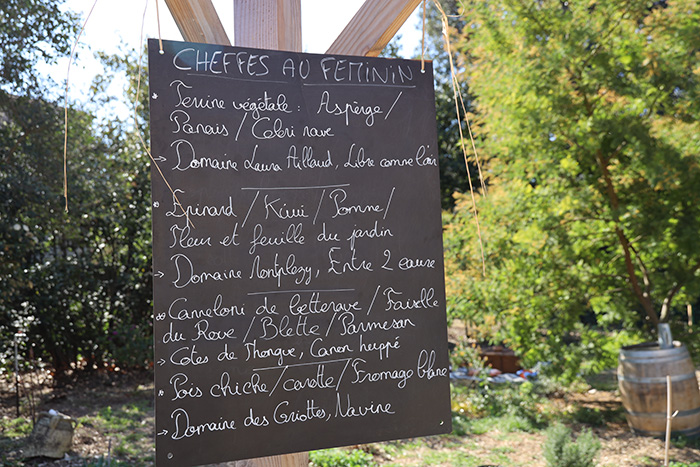 CHEFFES AU FEMININ
Terrine végétale : Aspèrge /
Panais / Celeri rave
→ Domaine Laura Aillaud, Libre comme l'air
Epinard / Kiwi / Pomme /
Fleur et feuille du jardin
→ Domaine Montplezy, Entre 2 eause
Canneloni de betterave / Faisselle
du Rove / Blette / Parmesan
→ Côtes de Thongue, Canon huppé
Pois chiche / carotte / Fromage blanc
→ Domaine des Griottes, Navine